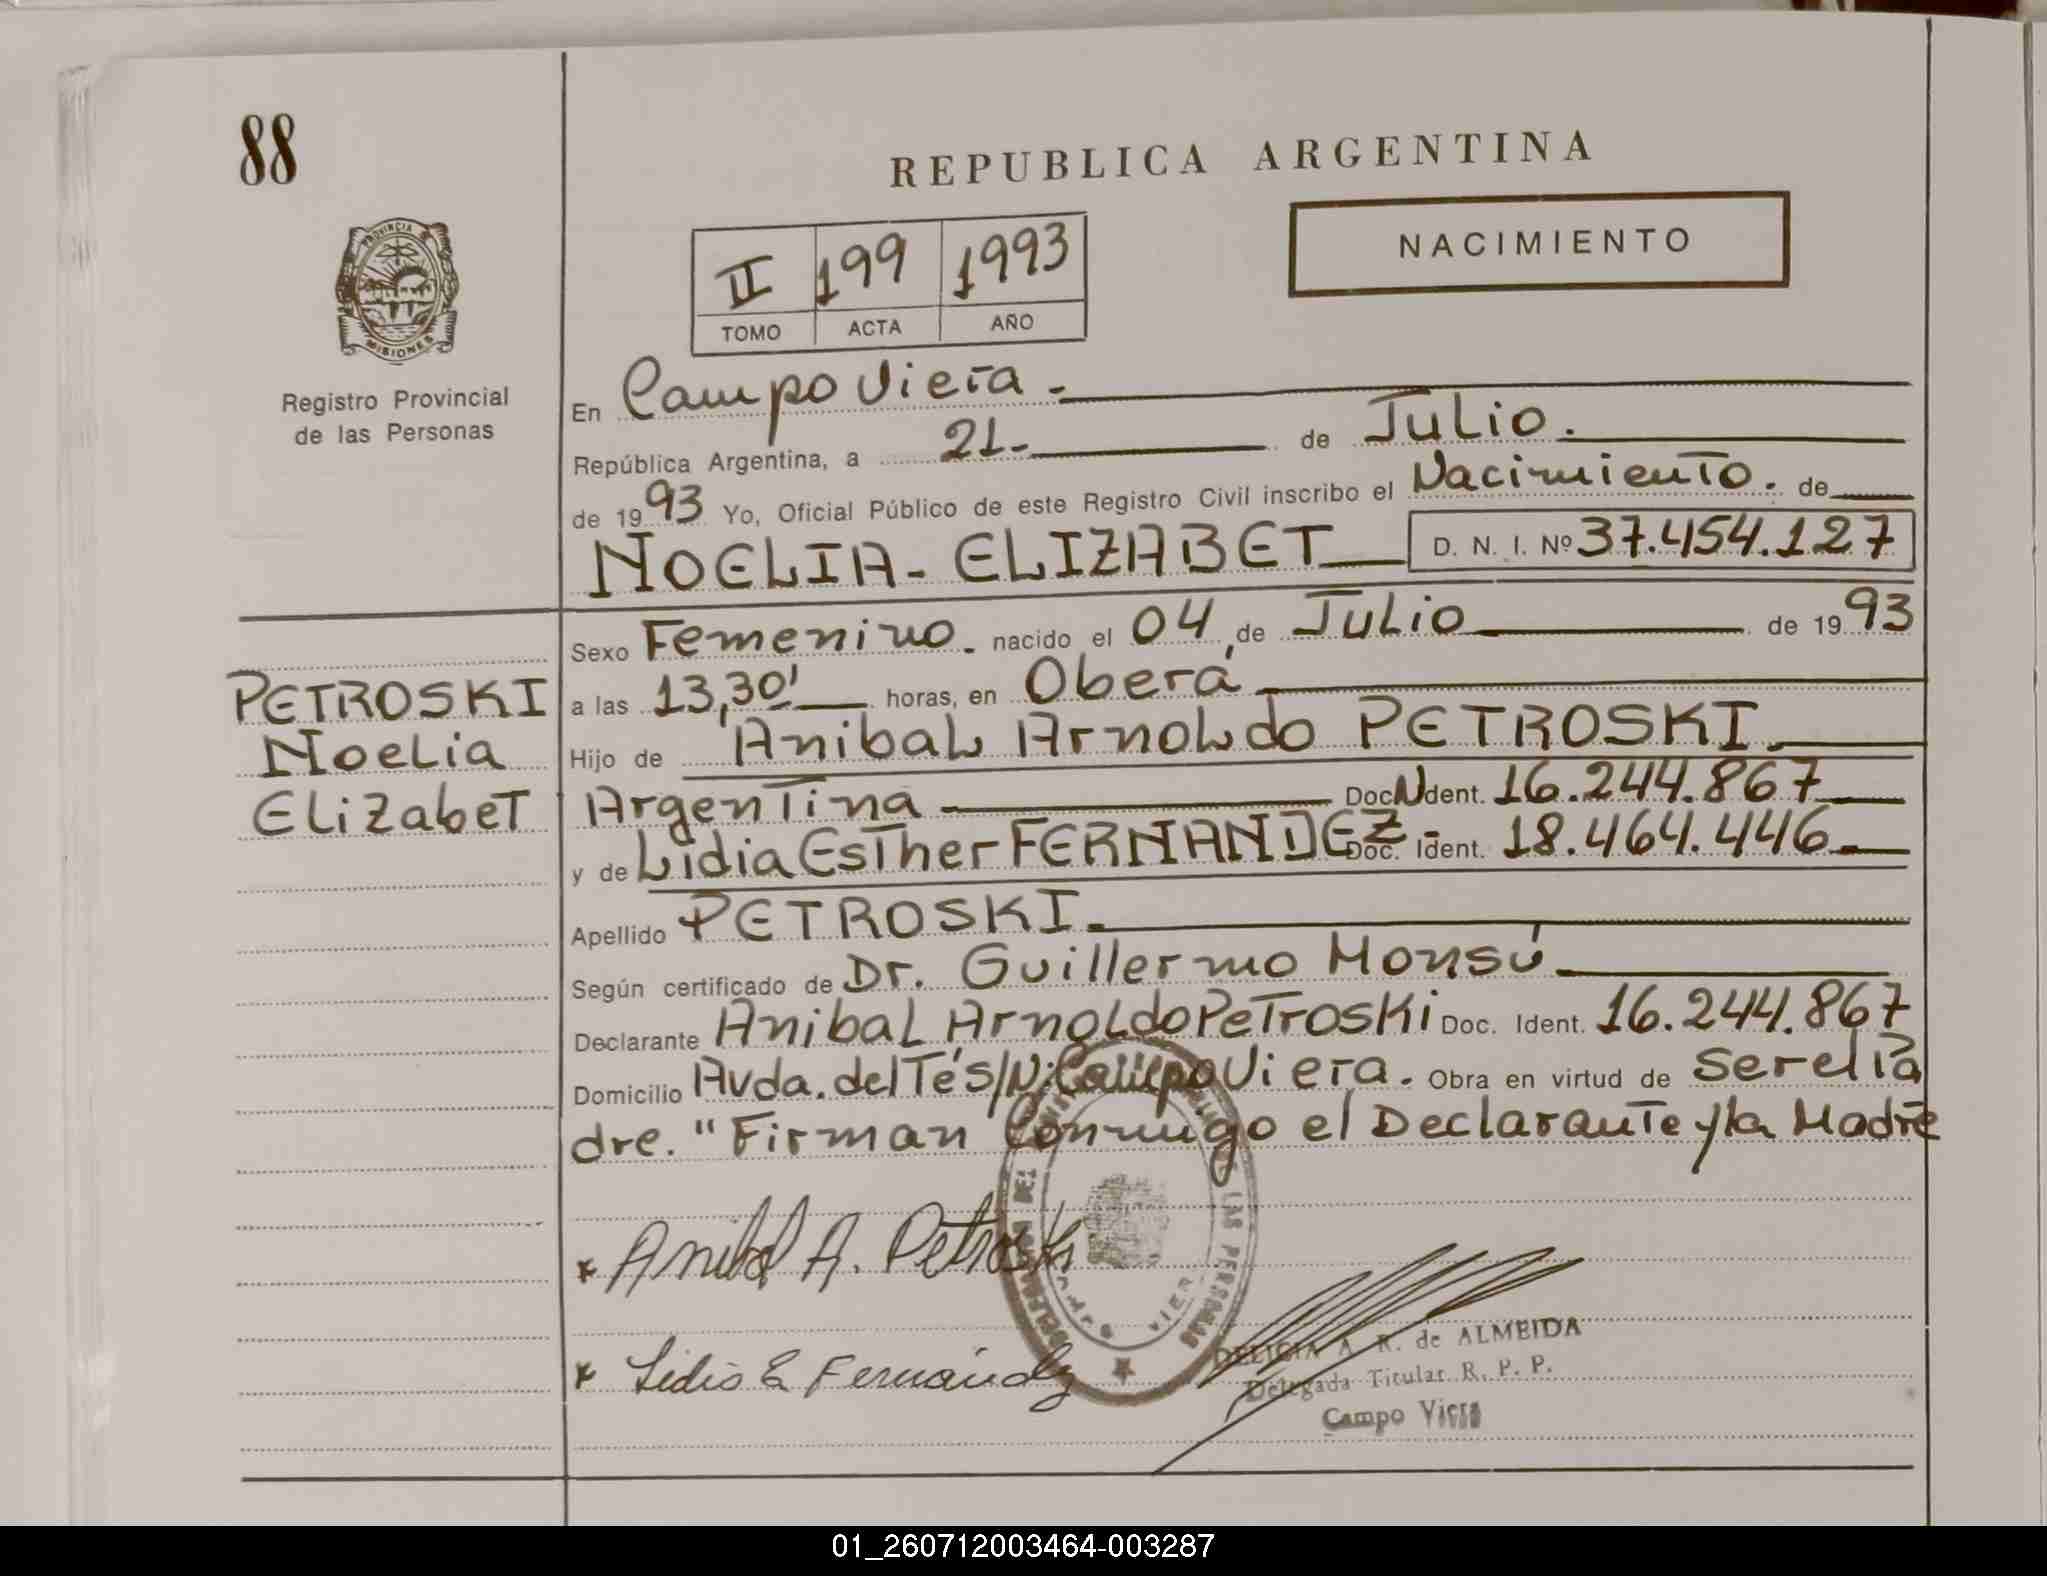 88
REPUBLICA ARGENTINA
NACIMIENTO
II 199 1993
TOMO ACTA AÑO
PROVINCIA
MISIONES
Registro Provincial
de las Personas
En Campo Viera.
República Argentina, a 21- de Julio.
de 1993 Yo, Oficial Público de este Registro Civil inscribo el Nacimiento. de
NOELIA- ELIZABET D. N. I. Nº 37.454.127
PETROSKI
Noelia
Elizabet
Sexo Femenino. nacido el 04 de Julio de 1993
a las 13,30' horas, en Oberá
Hijo de Anibal Arnoldo PETROSKI.
Argentina Doc. Ident. 16.244.867
y de Lidia Esther FERNANDEZ.- Doc. Ident. 18.464.446
Apellido PETROSKI.
Según certificado de Dr. Guillermo Monsú
Declarante Anibal Arnoldo Petroski Doc. Ident. 16.244.867
Domicilio Avda. del Té s/N: Campo Viera. Obra en virtud de Ser el Pa
dre. "Firman Conmigo el Declarante y la Madre
Anibal A. Petroski
LAS PERSONAS
Lidia E Fernández
DELICIA A. R. de ALMEIDA
Delegada Titular R. P. P.
Campo Viera
01_260712003464-003287